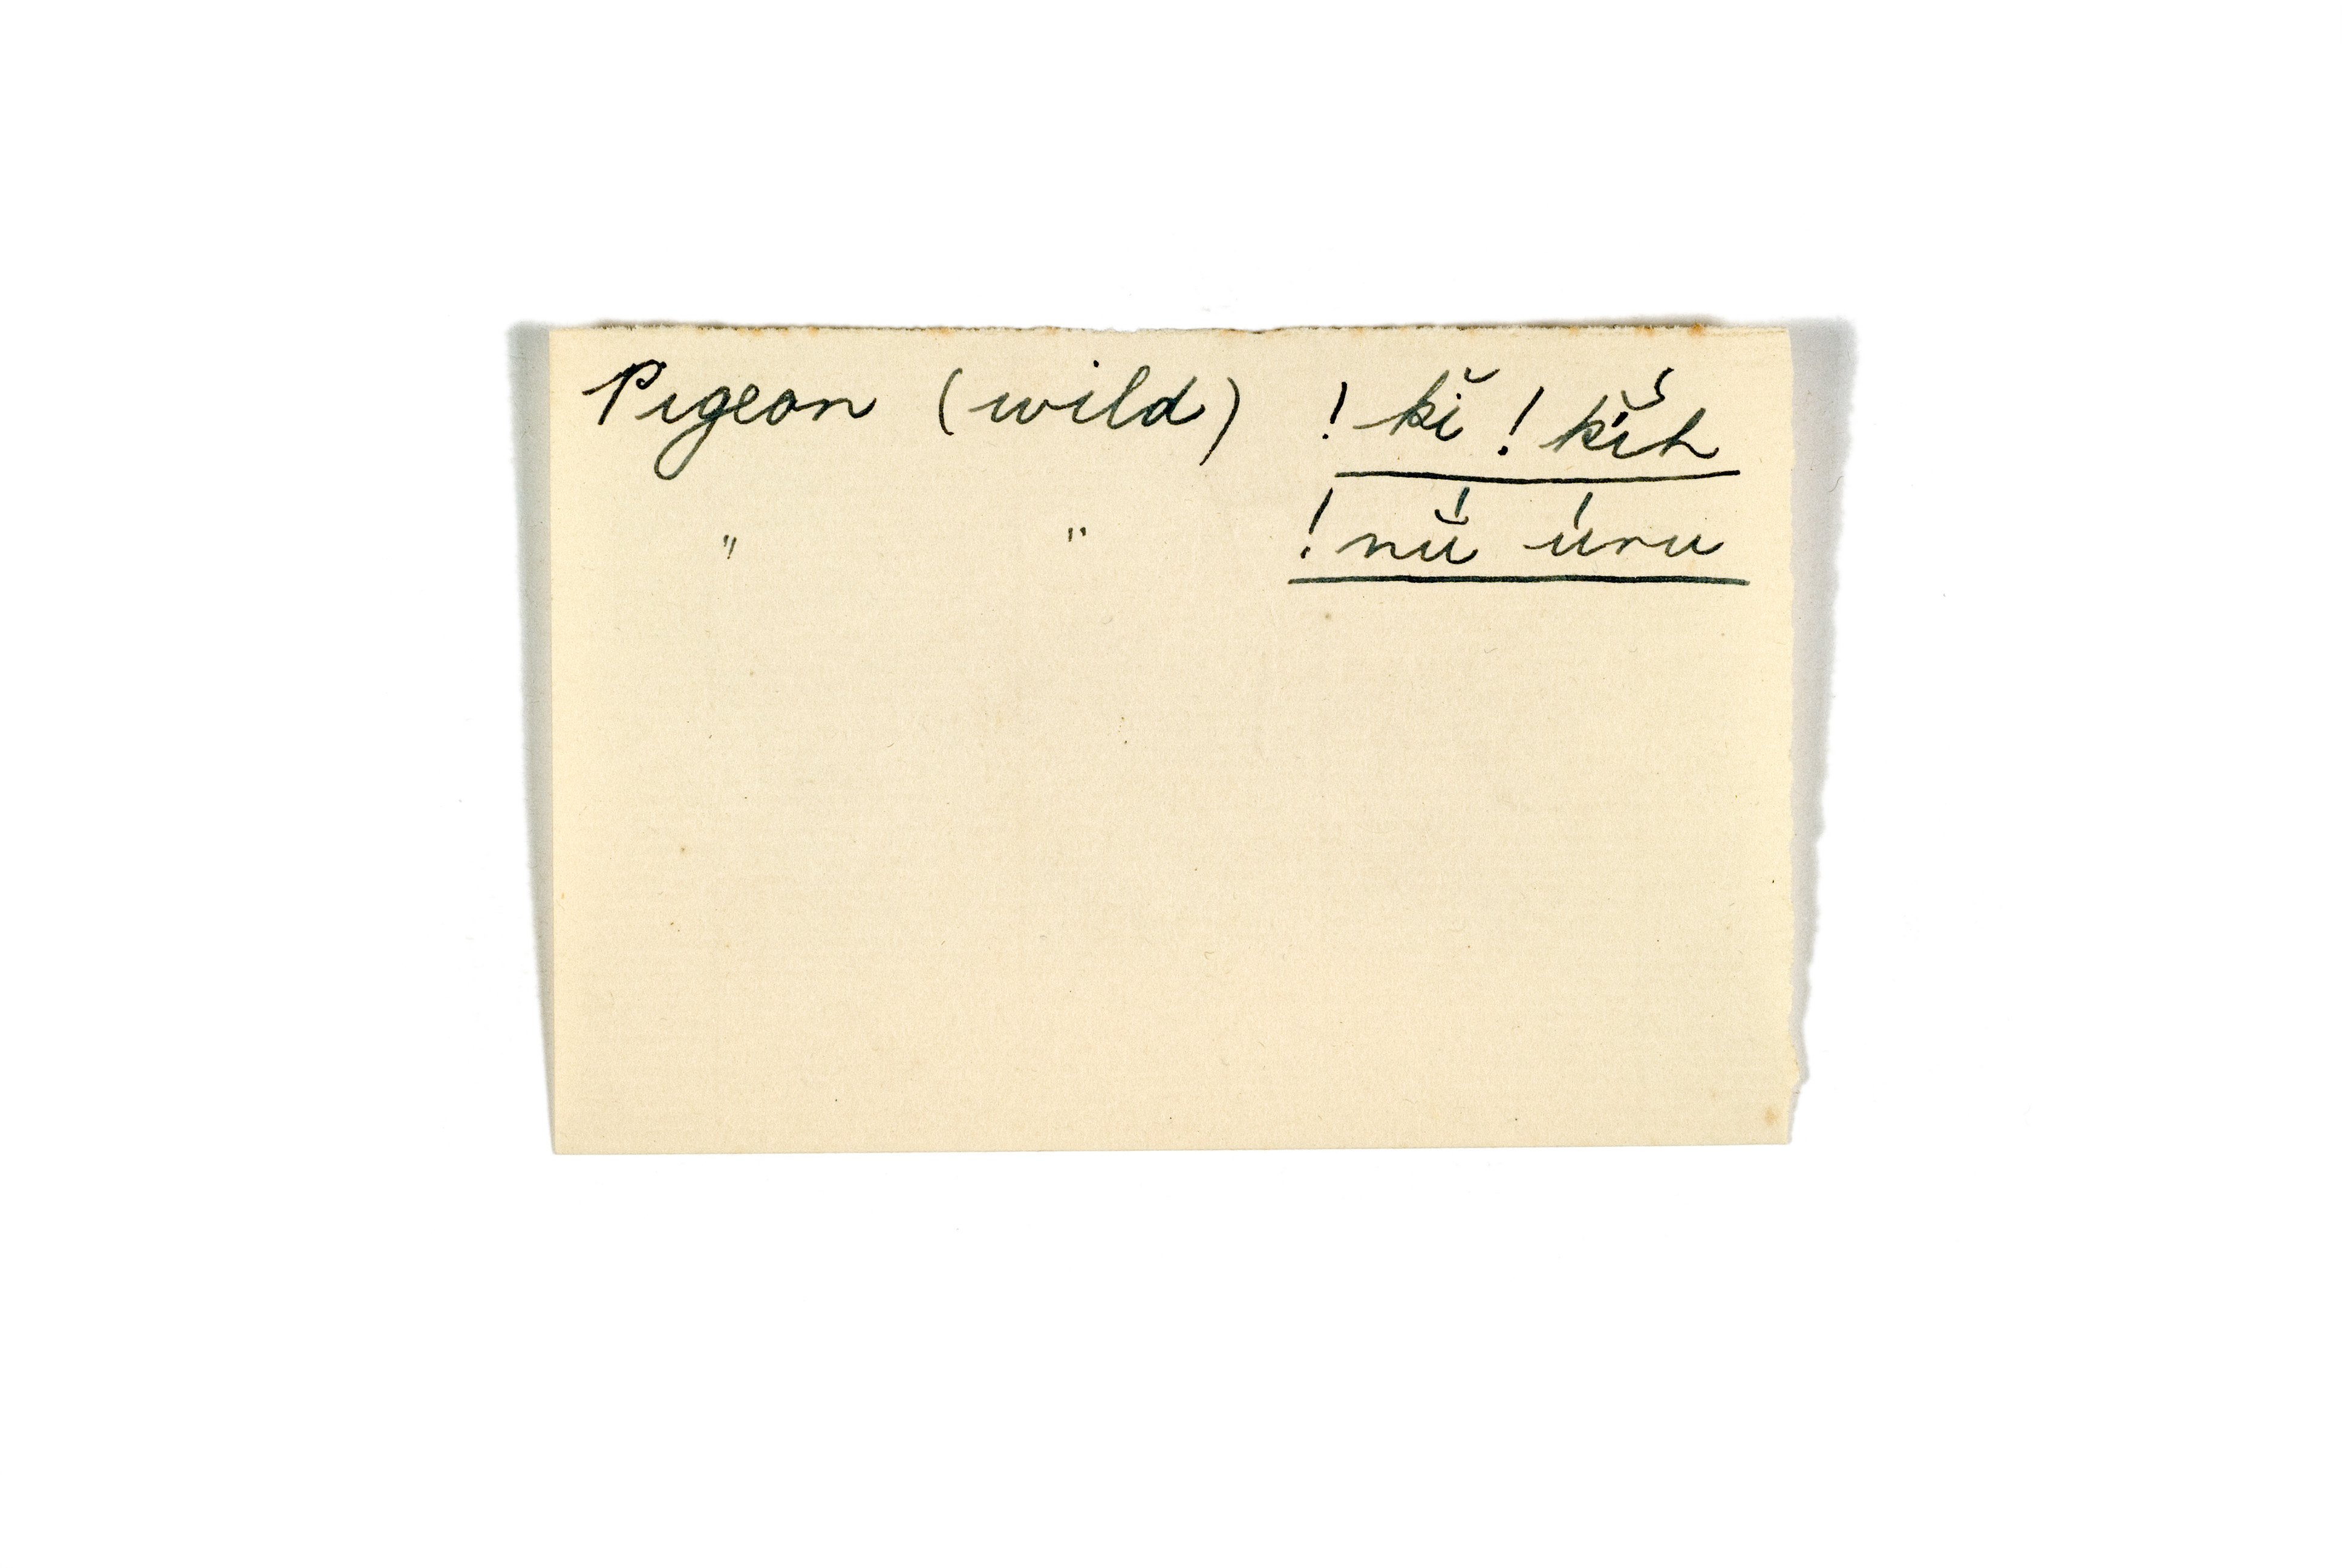 Pigeon (wild) !kĭ !kĭh
" " !nŭ́ úru